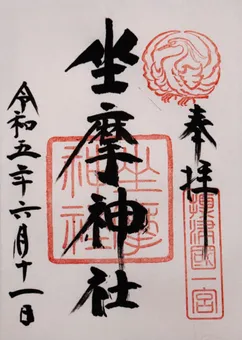 奉拝
摂津國一宮
坐摩神社
坐摩神社
令和五年六月十一日